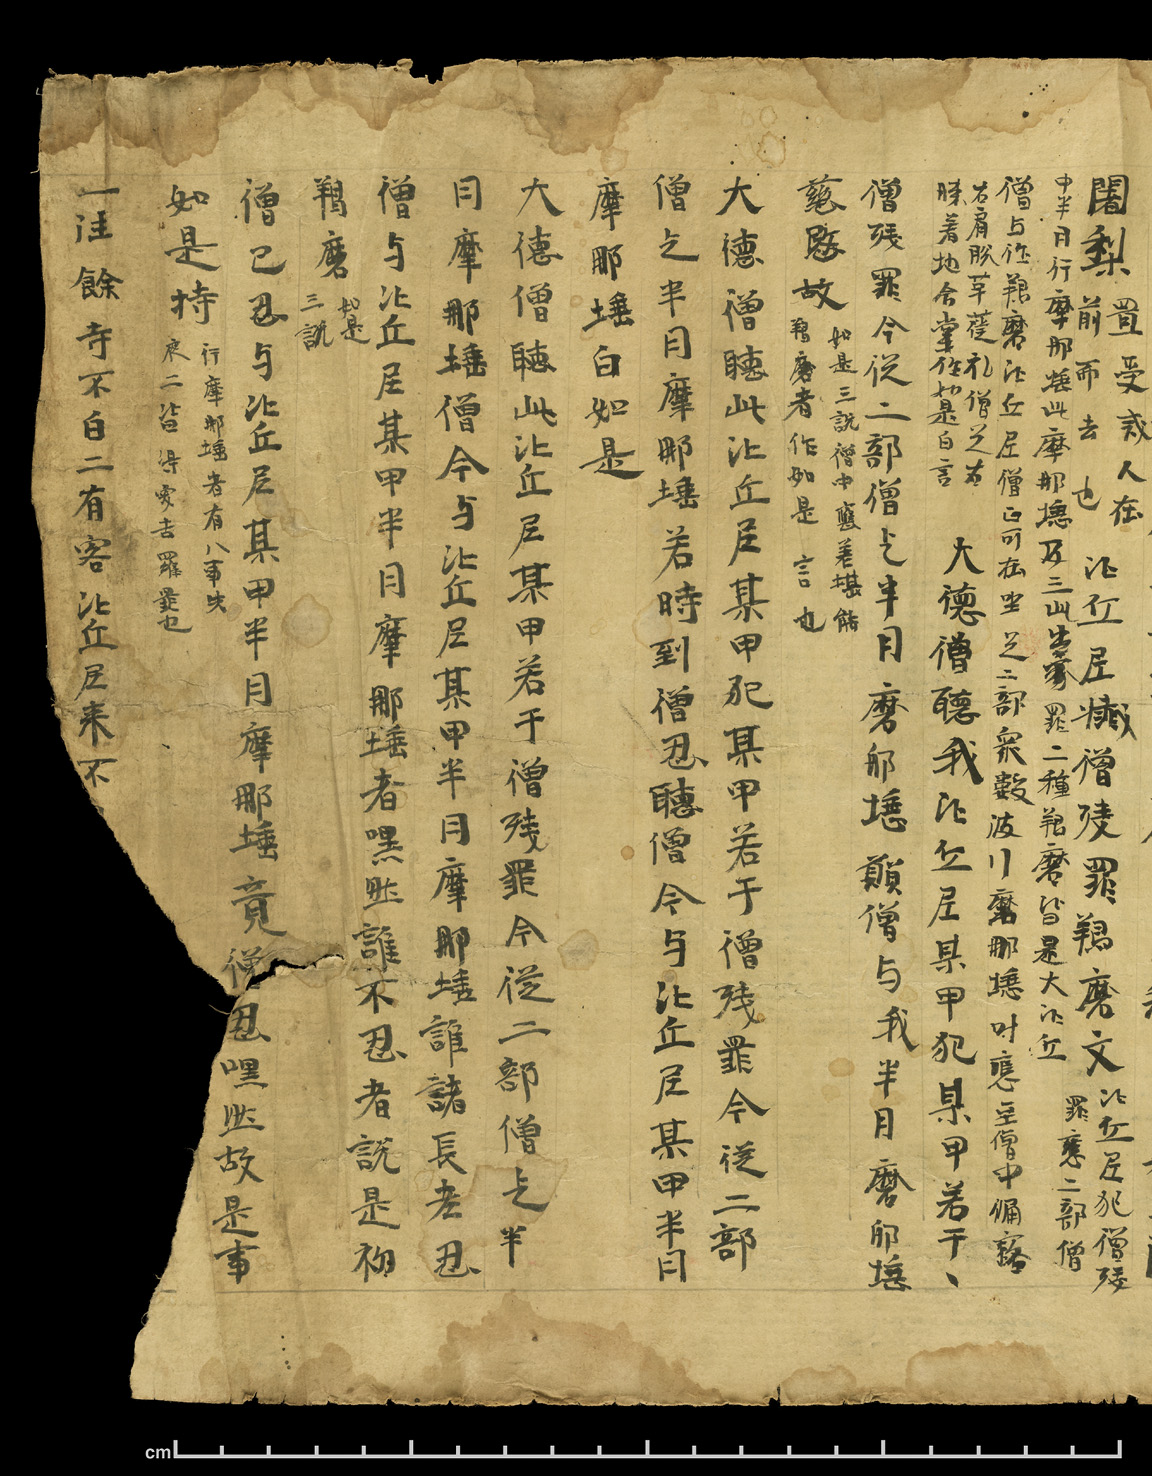 闍梨
前而去也
置受戒人在
比丘尼懺僧殘罪羯磨文
比丘尼犯僧殘
罪應二部僧
中半月行摩那埵此摩那埵及三出
罪二種羯磨皆是大比丘
僧与作羯磨比丘尼僧正可在坐足二部衆數波川磨那埵时應至僧中偏露
右肩脫革屣礼僧足右
膝着地合掌作如是白言
大德僧聽我比丘尼某甲犯某甲若干
僧殘罪今從二部僧乞半月磨那埵願僧与我半月磨那埵
慈愍故
如是三說僧中應差堪能
羯磨者作如是言也
大德僧聽此比丘尼某甲犯某甲若干僧殘罪今從二部
僧乞半月摩那埵若時到僧忍聽僧今与比丘尼某甲半月
摩那埵白如是
大德僧聽此比丘尼某甲若干僧殘罪今從二部僧乞半
月摩那埵僧今与比丘尼某甲半月摩那埵誰諸長老忍
僧与比丘尼某甲半月摩那埵者嘿然誰不忍者說是初
羯磨
如是
三說
僧已忍与比丘尼某甲半月摩那埵竟僧忍嘿然故是事
如是持
行摩那埵者有八事失
夜二皆得突吉羅罪也
一注餘寺不白二有客比丘尼来不